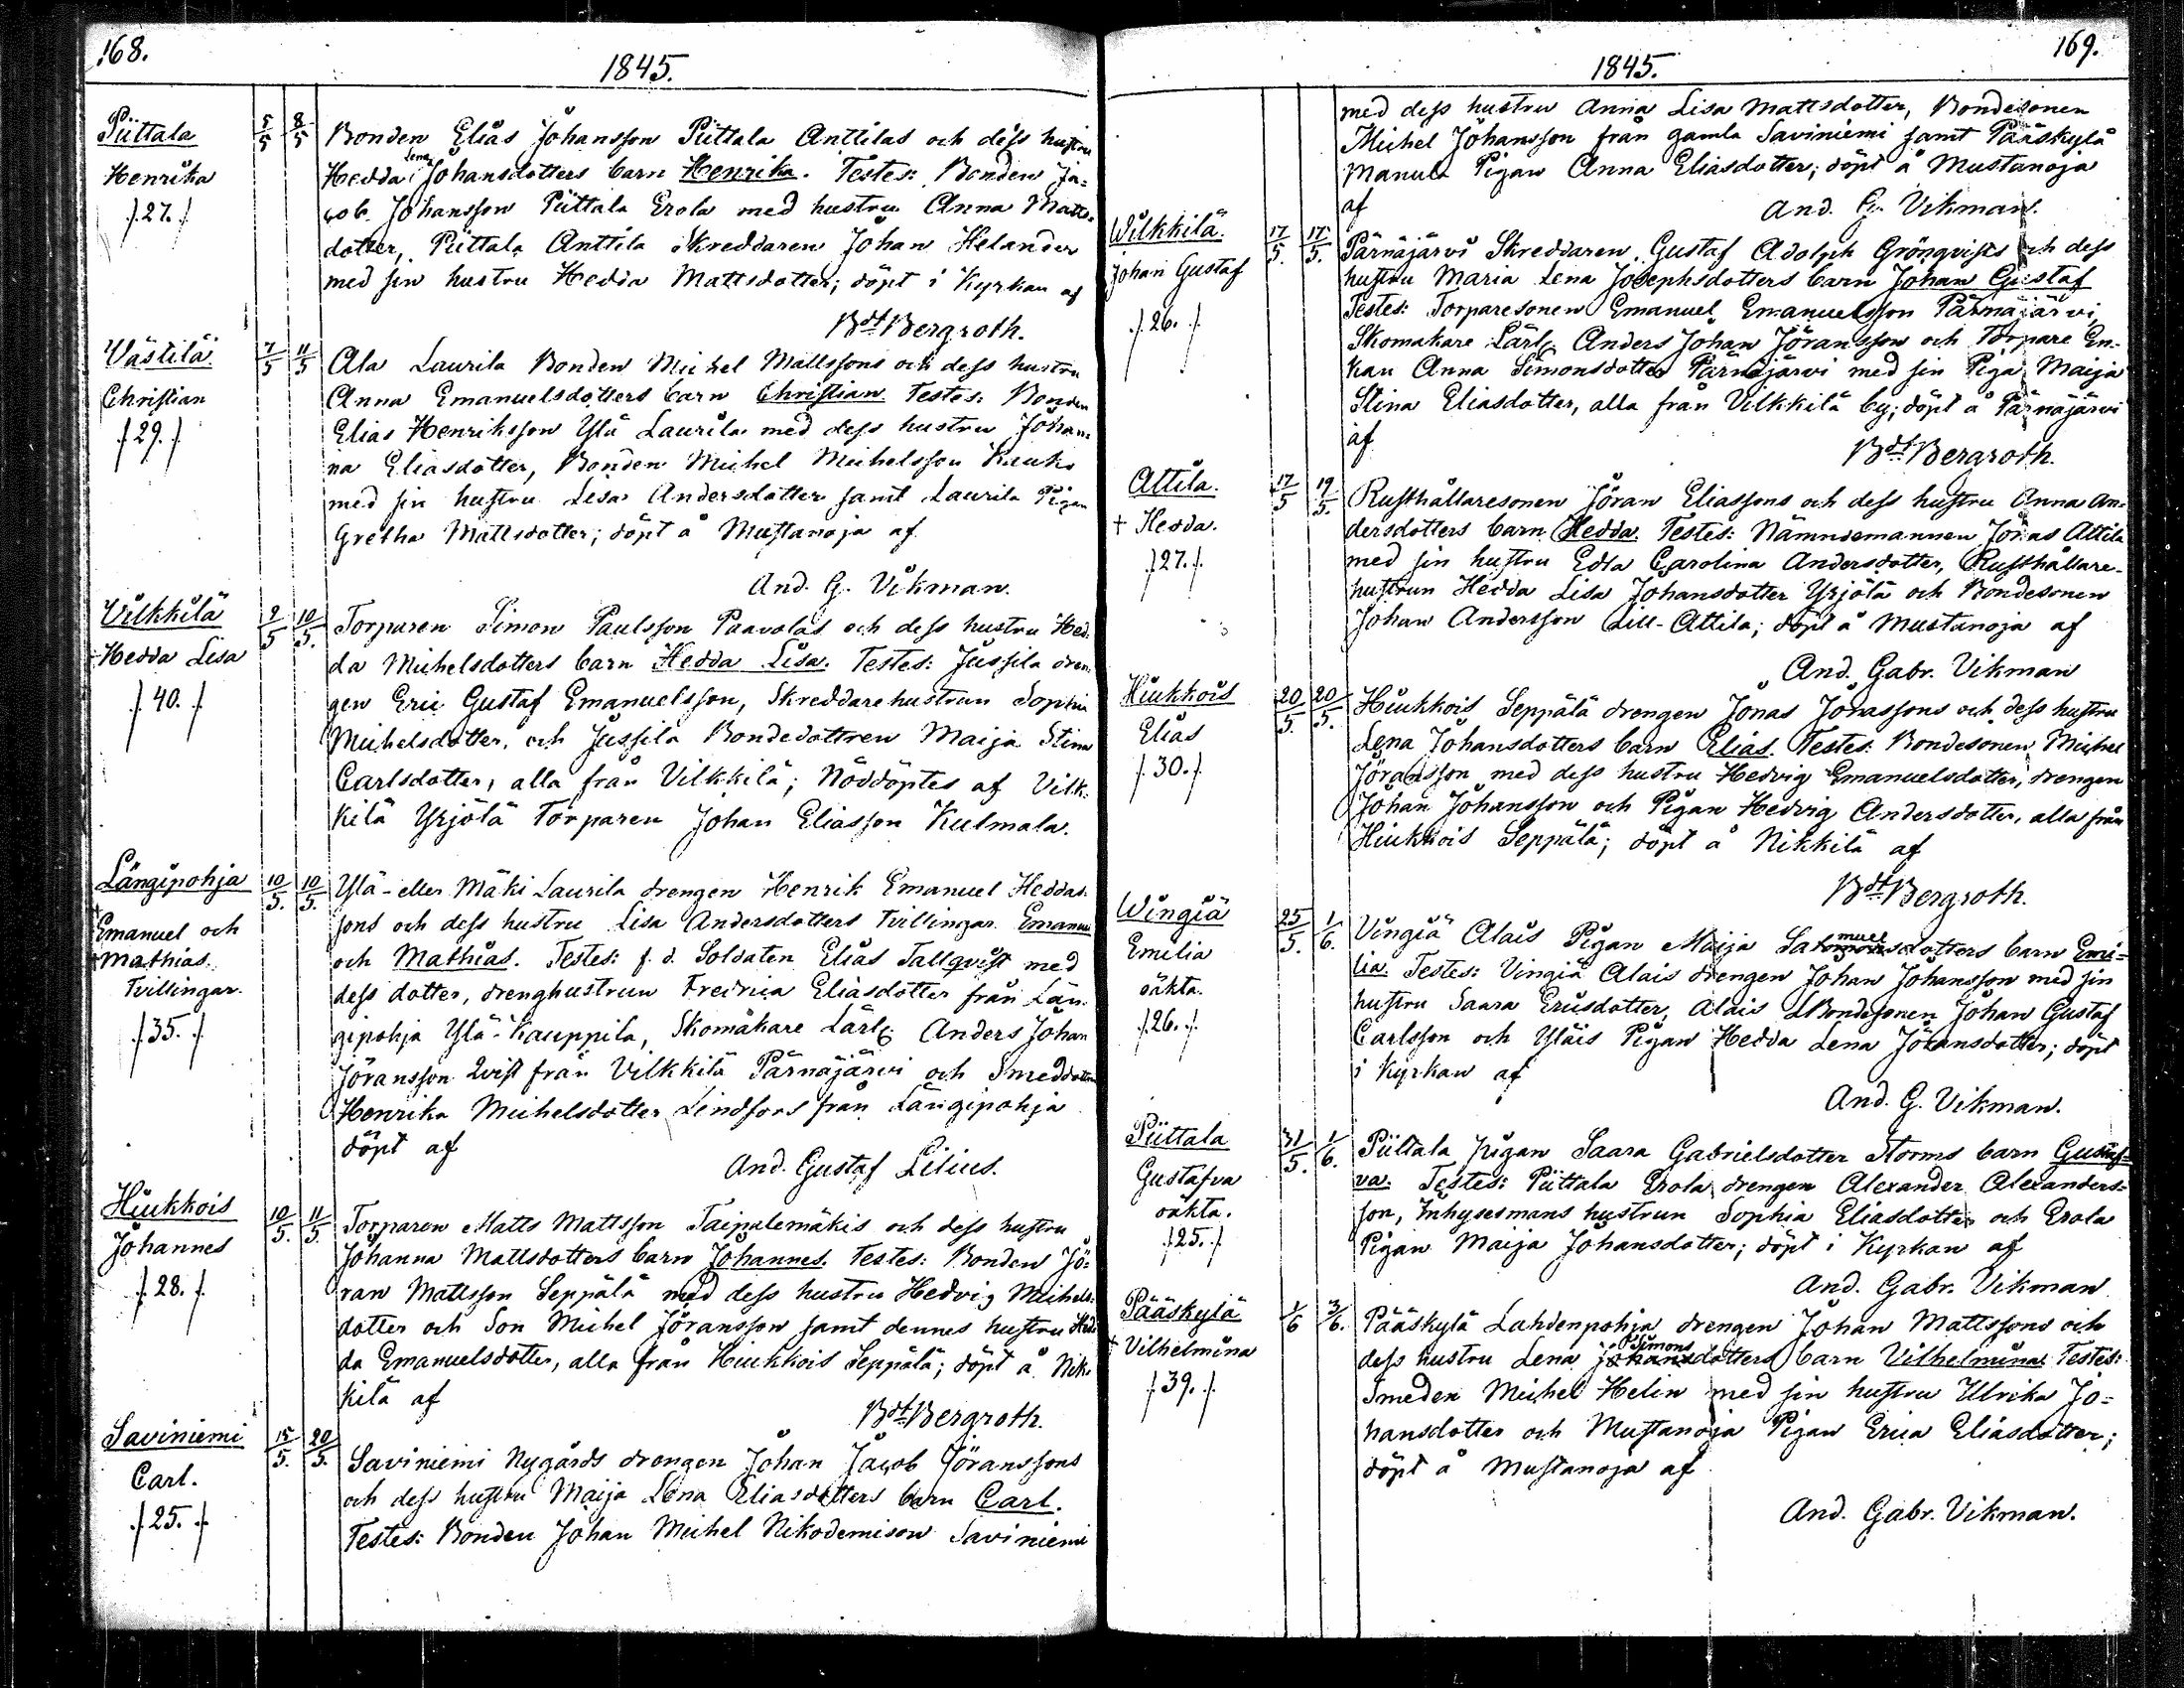 168.
1845.
Piittala
Henrika
/27./
5/5 8/5
Bonden Elias Johansson Piittala Anttilas och dess hustru
Hedda Lena Johansdotters barn Henrika. Testes: Bonden Ja-
cob Johansson Piittala Erola med hustru Anna Matts-
dotter, Piittala Anttila Skreddaren Johan Helander
med sin hustru Hedda Mattsdotter; döpt i Kyrkan af
Bdt Bergroth.
Västilä
Christian
/29./
7/5 11/5
Ala Laurila Bonden Michel Mattssons och dess hustru
Anna Emanuelsdotters barn Christian. Testes: Bonden
Elias Henriksson Ylä Laurila med dess hustru Johan-
na Eliasdotter, Bonden Michel Michelsson Kauko
med sin hustru Lisa Andersdotter samt Laurila Pigan
Gretha Mattsdotter; döpt å Mustanoja af
And. G. Vikman.
Vilkkilä
+ Hedda Lisa
/40./
2/5 10/5.
Torparen Simon Paulsson Paavolas och dess hustru Hed-
da Michelsdotters barn Hedda Lisa. Testes: Jussila dren-
gen Eric Gustaf Emanuelsson, Skreddarehustrun Sophia
Michelsdotter, och Jussila Bondedottren Maija Stina
Carlsdotter, alla från Vilkkilä; Nöddöptes af Vilk-
kilä Yrjölä Torparen Johan Eliasson Kulmala.
Längipohja
+ Emanuel och
+ Mathias.
Tvillingar.
/35./
10/5. 10/5.
Ylä- eller Mäki Laurila drengen Henrik Emanuel Heddas-
sons och dess hustru Lisa Andersdotters Tvillingar Emanuel
och Mathias. Testes: f.d. Soldaten Elias Tallqvist med
dess dotter, drenghustrun Fredrica Eliasdotter från Län-
gipohja Ylä-Kauppila, Skomakare Lärl. Anders Johan
Jöransson Qvist från Vilkkilä Pärnäjärvi och Smeddottren
Henrika Michelsdotter Lindfors från Längipohja
döpt af
And. Gustaf Lilius.
Hiukkois
Johannes
/28./
10/5. 11/5
Torparen Matts Mattsson Taipalemäkis och dess hustru
Johanna Mattsdotters barn Johannes. Testes: Bonden Jö-
ran Mattsson Seppälä med dess hustru Hedvig Michels-
dotter och Son Michel Jöransson samt dennes hustru Hed-
da Emanuelsdotter, alla från Hiukkois Seppälä; döpt å Nik-
kilä af
Bdt Bergroth.
Saviniemi
Carl.
/25./
15/5. 20/5.
Saviniemi Nygårds drengen Johan Jacob Jöranssons
och dess hustru Maija Lena Eliasdotters barn Carl.
Testes: Bonden Johan Michel Nikodemison Saviniemi
169.
1845.
med dess hustru Anna Lisa Mattsdotter, Bondesonen
Michel Johansson från gamla Saviniemi samt Pääskylä
Manula Pigan Anna Eliasdotter; döpt å Mustanoja
af
And. G. Vikman.
Wilkkilä.
Johan Gustaf
/26./
17/5. 17/5.
Pärnäjärvi Skreddaren Gustaf Adolph Grönqvists och dess
hustru Maria Lena Josephsdotters barn Johan Gustaf
Testes: Torparesonen Emanuel Emanuelsson Pärnäjärvi,
Skomakare Lärl. Anders Johan Jöransson och Torpare En-
kan Anna Simonsdotter Pärnäjärvi med sin Piga Maija
Stina Eliasdotter, alla från Vilkkilä by; döpt å Pärnäjärvi
af
Bdt Bergroth.
Attila.
+ Hedda.
/27./
17/5 19/5.
Rusthållaresonen Jöran Eliassons och dess hustru Anna An-
dersdotters barn Hedda. Testes: Nämndemannen Jonas Attila
med sin hustru Edla Carolina Andersdotter, Rusthållare-
hustrun Hedda Lisa Johansdotter Yrjölä och Bondesonen
Johan Andersson Lill-Attila; döpt å Mustanoja af
And. Gabr. Vikman
Hiukkois
Elias
/30./
20/5. 20/5.
Hiukkois Seppälä drengen Jonas Jonassons och dess hustru
Lena Johansdotters barn Elias. Testes: Bondesonen Michel
Jöransson med dess hustru Hedvig Emanuelsdotter, drengen
Johan Johansson och Pigan Hedvig Andersdotter, alla från
Hiukkois Seppälä; döpt å Nikkilä af
Bdt Bergroth.
Wingiä
Emilia
oäkta.
/26./
25/5. 1/6.
Vingiä Alais Pigan Maija Samuelsdotters barn Emi-
lia. Testes: Vingiä Alais drengen Johan Johansson med sin
hustru Saara Ericsdotter, Alais Bondesonen Johan Gustaf
Carlsson och Yläis Pigan Hedda Lena Johansdotter; döpt
i Kyrkan af
And. G. Vikman.
Piittala
Gustafva
oäkta.
/25./
31/5. 1/6.
Piittala Pigan Saara Gabrielsdotter Storms barn Gustaf-
va. Testes: Piittala Erola drengen Alexander Alexanders-
son, Inhysesmans hustrun Sophia Eliasdotter och Erola
Pigan Maija Johansdotter; döpt i Kyrkan af
And. Gabr. Vikman
Pääskylä
+ Vilhelmina
/39./
1/6 3/6.
Pääskylä Lahdenpohja drengen Johan Mattssons och
dess hustru Lena Simonsdotters barn Vilhelmina. Testes:
Smeden Michel Helin med sin hustru Ulrika Jo-
hansdotter och Mustanoja Pigan Erica Eliasdotter;
döpt å Mustanoja af
And. Gabr. Vikman.